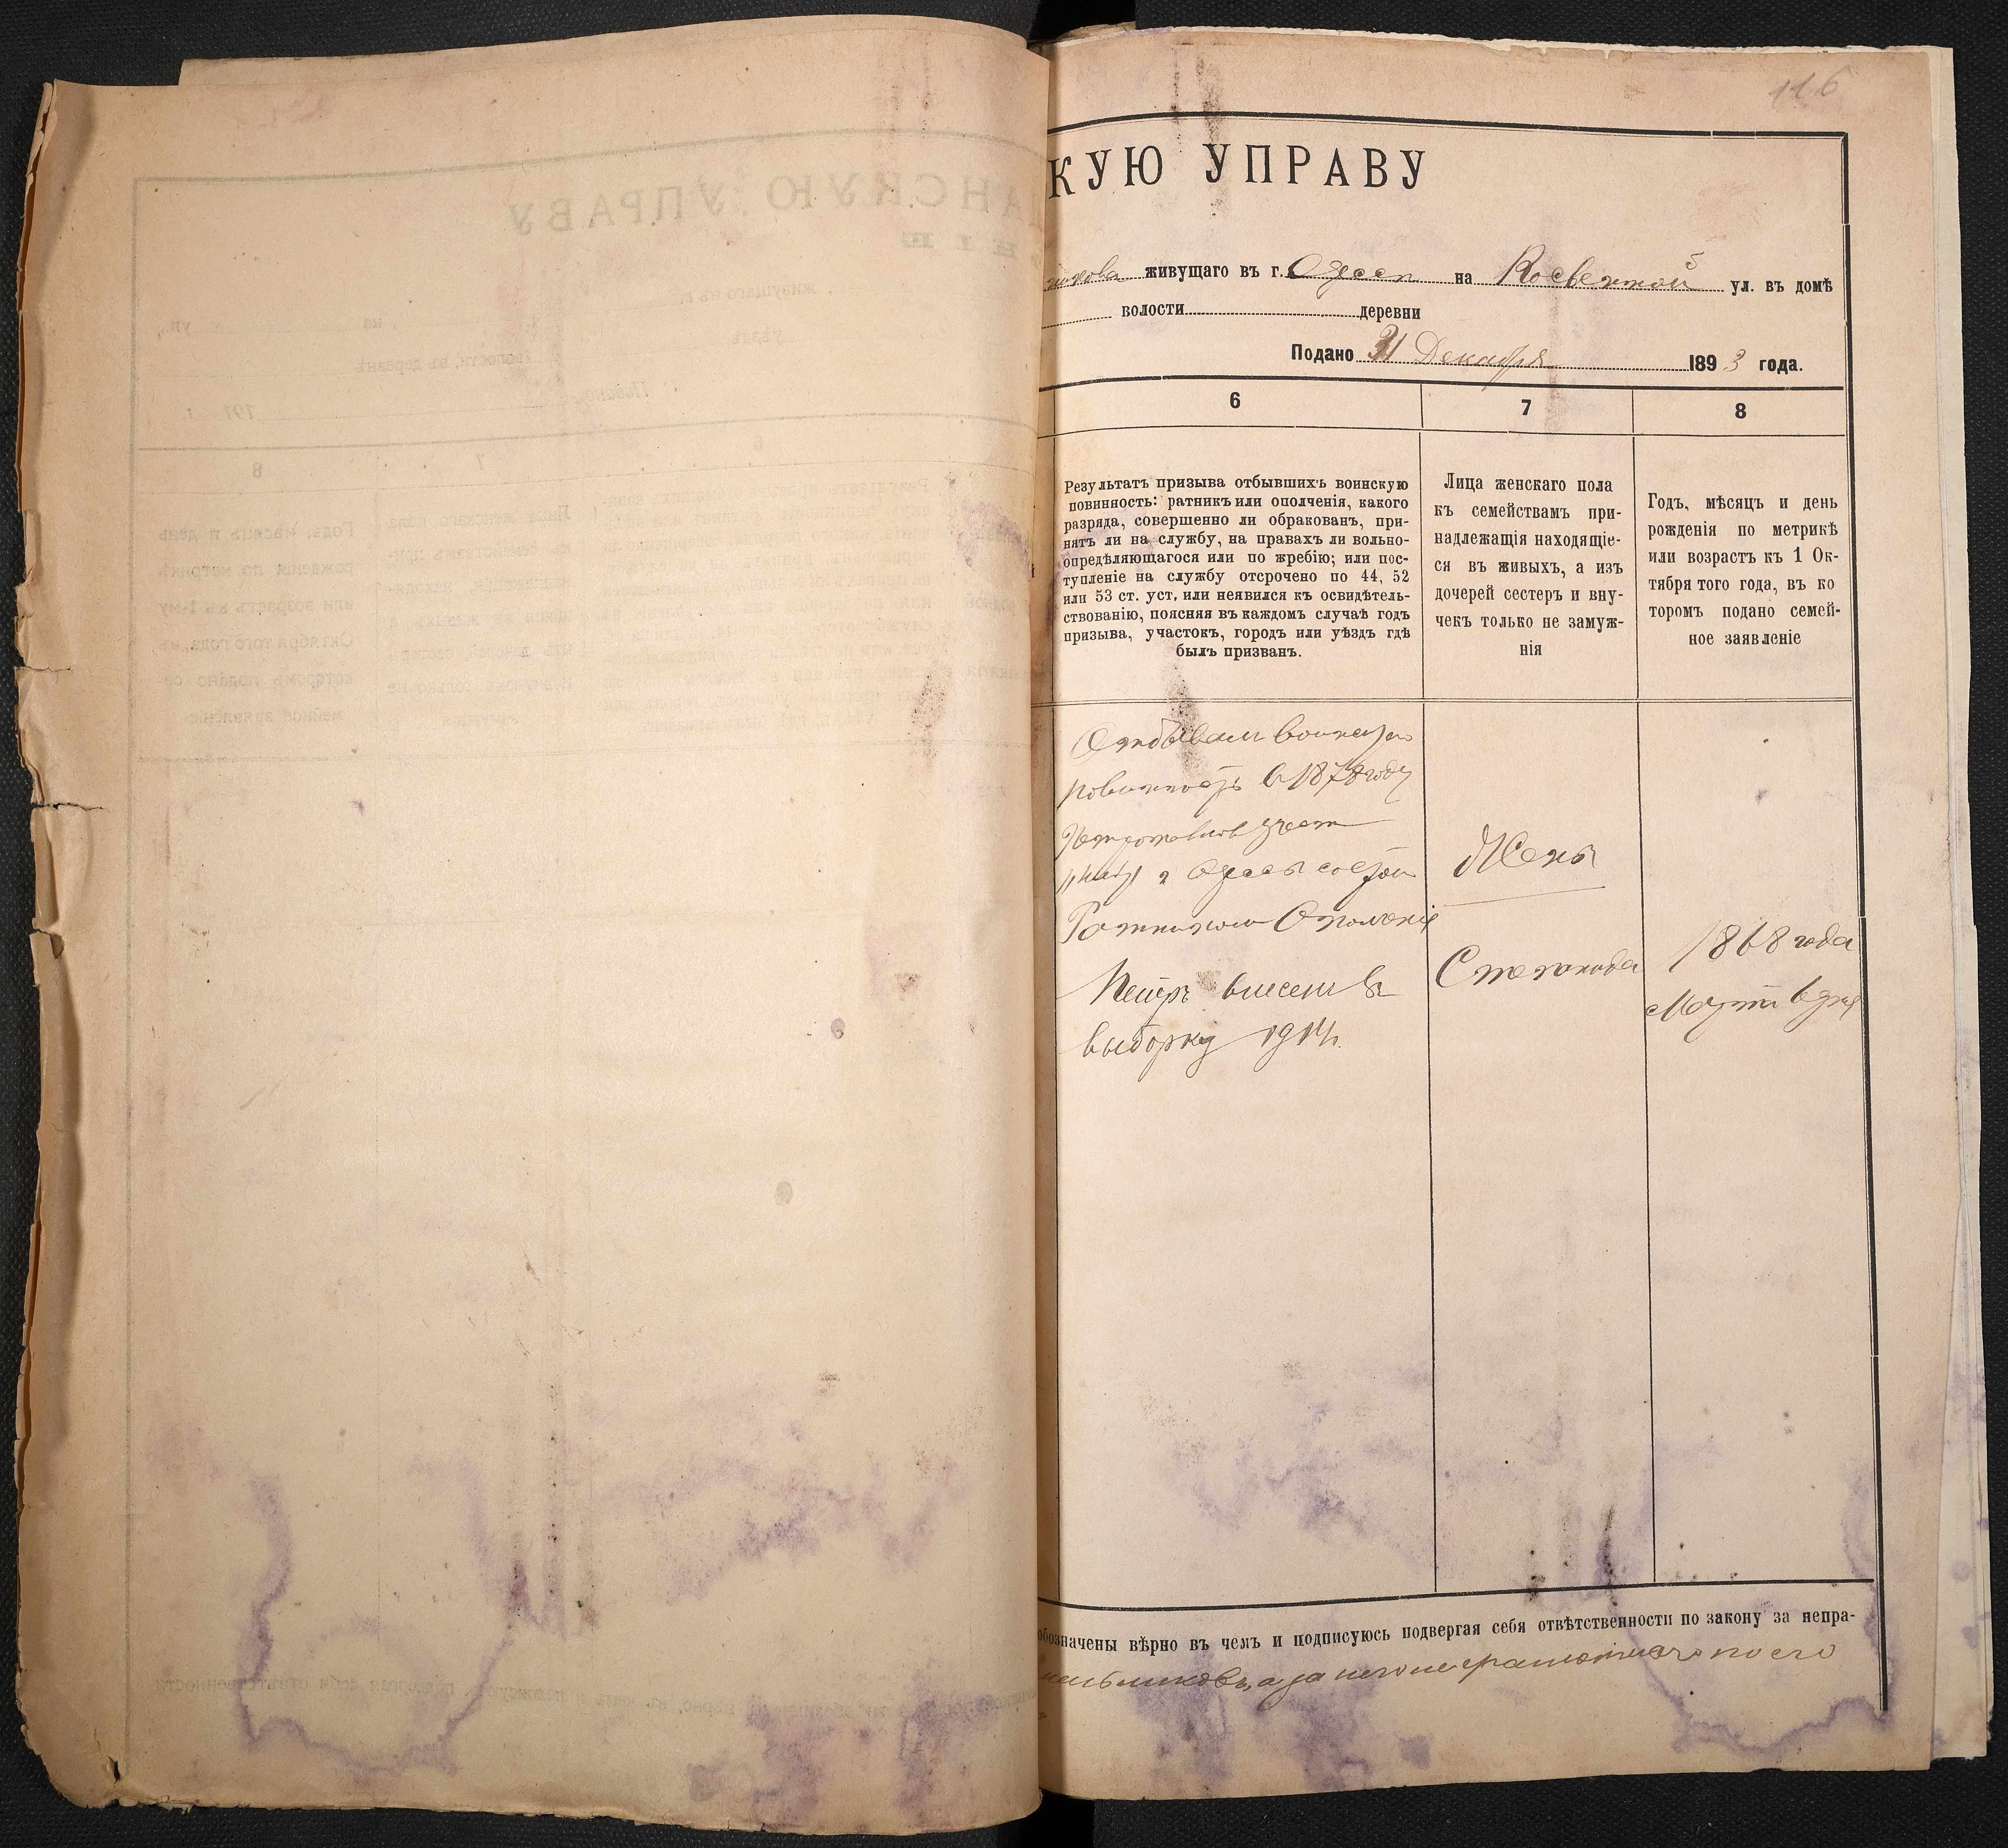 116
КУЮ УПРАВУ
живущаго въ г. Одессе на Косвенной ул. въ домѣ
волости деревни
Подано 31 Декабря 1893 года.
6 7 8
Результатъ призыва отбывшихъ воинскую
повинность: ратникъ или ополченія, какого
разряда, совершенно ли обракованъ, при-
нятъ ли на службу, на правахъ ли вольно-
опредѣляющагося или по жребію; или пос-
тупленіе на службу отсрочено по 44, 52
или 53 ст. уст, или неявился къ освидѣтель-
ствованію, поясняя въ каждомъ случаѣ годъ
призыва, участокъ, городъ или уѣздъ гдѣ
былъ призванъ.
Лица женскаго пола
къ семействамъ при-
надлежащія находящіе-
ся въ живыхъ, а изъ
дочерей сестеръ и вну-
чекъ только не замуж-
нія
Годъ, мѣсяцъ и день
рожденія по метрикѣ
или возрастъ къ 1 Ок-
тября того года, въ ко
торомъ подано семей-
ное заявленіе
Отбывал воинскую
повинность в 1878 году
г Одессы состои
Ратником Ополчения
Петръ внесенъ в
выборку 1914 г.
Жена
Степанида
1868 года
Марта 6 дня
обозначены вѣрно въ чемъ и подписуюсь подвергая себя отвѣтственности по закону за непра-
а за него неграмотнаго по его